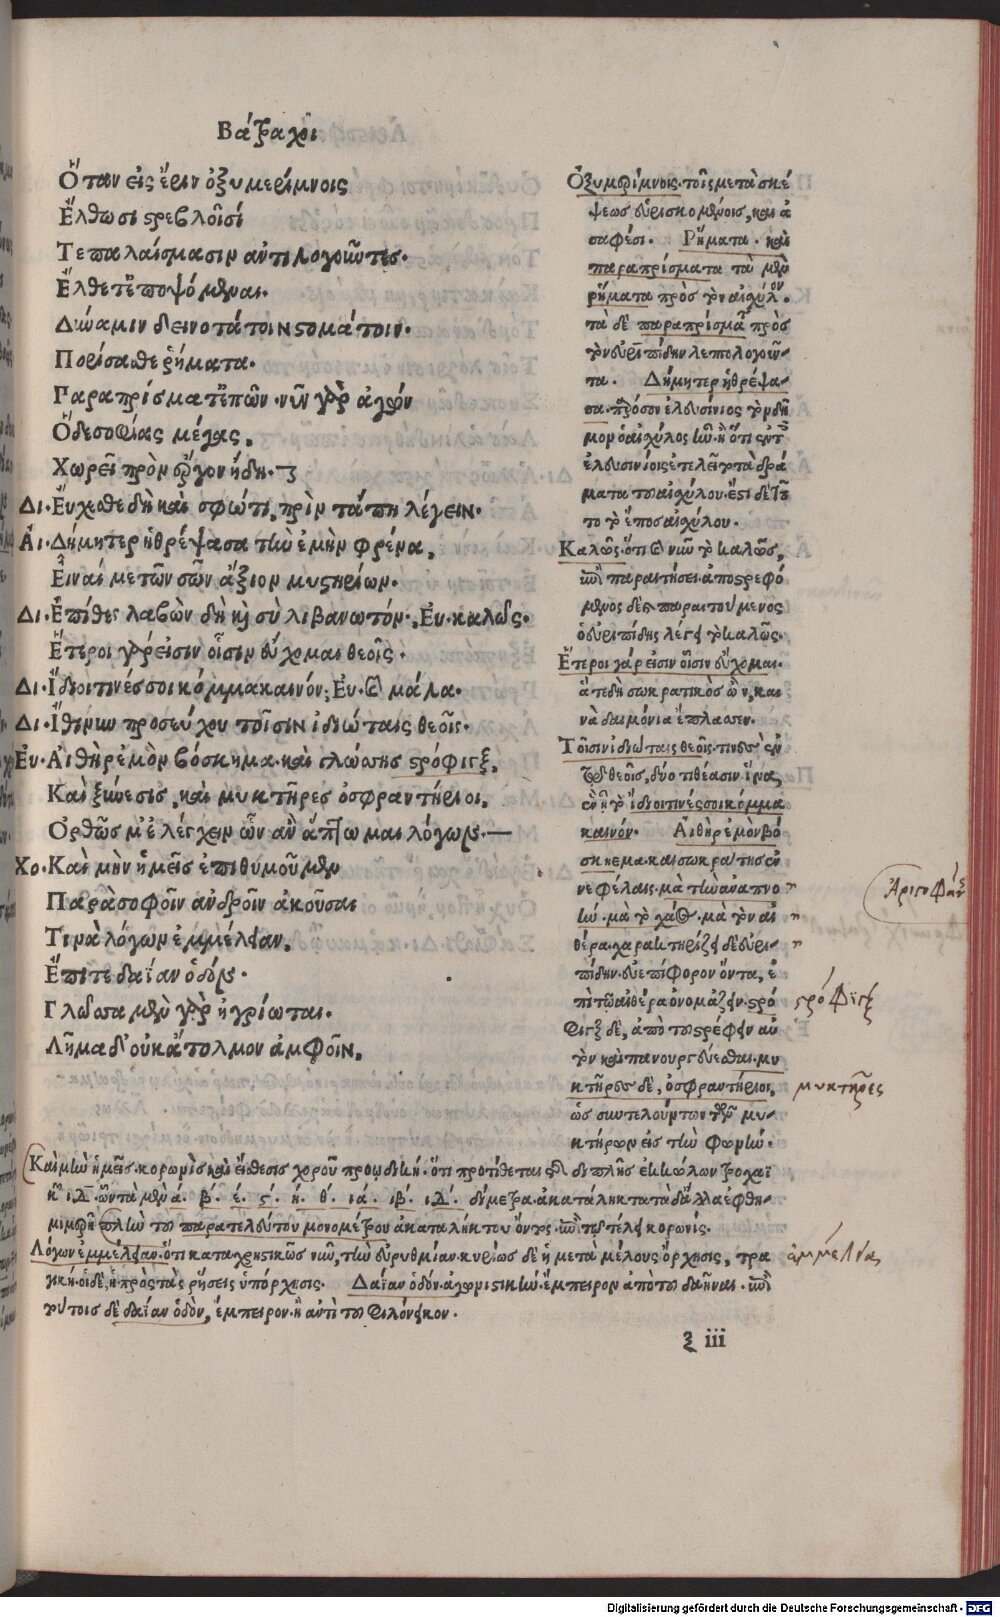 Βάτραχοι
Ὅταν εἰς ἔριν ὀξυμερίμνοις
Ἔλθωσι στρεβλοῖσί
Τε παλαίσμασιν ἀντιλογοῦντες.
Ἔλθετ' ἐποψόμεναι.
Δύαμιν δεινοτάτοιν στομάτοιν.
Πορίσασθε ῥήματα.
Παραπρίσματ' ἐπῶν. νῦν γὰρ ἀγὼν
Ὅδε σοφίας μέγας.
Χωρεῖ πρὸν ἔργον ἤδη.
Δι. Εὔχεσθε δὴ καὶ σφώ τι, πρὶν τἄπη λέγειν.
Αἰ. Δήμητερ ἡ θρέψασα τὴν ἐμὴν φρένα,
Εἶναί με τῶν σῶν ἄξιον μυστηρίων.
Δι. Ἐπίθες λαβὼν δὴ καὶ σὺ λιβανωτόν. Εὐ. καλῶς.
Ἕτεροι γάρ εἰσιν οἷσιν εὔχομαι θεοῖς.
Δι. Ἴδιοι τινές σοι κόμμα καινόν; Εὐ. καὶ μάλα.
Δι. Ἴθι νῦν προσεύχου τοῖσιν ἰδιώταις θεοῖς.
Εὐ. Αἰθὴρ ἐμὸν βόσκημα. καὶ γλώσσης στρόφιγξ,
Καὶ ξύνεσις, καὶ μυκτῆρες ὀσφραντήριοι,
Ὀρθῶς μ' ἐλέγχειν ὧν ἂν ἅπτωμαι λόγων.
Χο. Καὶ μὴν ἡμεῖς ἐπιθυμοῦμεν
Παρὰ σοφοῖν ἀνδροῖν ἀκοῦσαι
Τινὰ λόγων ἐμμέλειαν.
Ἔπιτε δαΐαν ὁδόν.
Γλῶσσα μὲν γὰρ ἠγρίωται.
Λῆμα δ' οὐκ ἄτολμον ἀμφοῖν,
Ὀξυμερίμνοις. τοῖς μετὰ σκέ
ψεως εὑρισκομένοις, καὶ ἀ
σαφέσι. Ῥήματα. καὶ
παραπρίσματα τὰ μὲν
ῥήματα πρὸς τὸν αἰσχύλον.
τὰ δὲ παραπρίσματα πρὸς
τὸν εὐριπίδην λεπτολογοῦν-
τα. Δήμητερ ἡ θρέψα-
σα. παρόσον ἐλευσίνιος τὸν δῆ
μον ὁ αἰσχύλος ἦν. ἢ ὅτι ἐν τοῖς
ἐλευσινίοις ἐτελεῖτο τὰ δρά
ματα τοῦ αἰσχύλου. ἔστι δὲ τοῦ
το τὸ ἔπος αἰσχύλου.
Καλῶς. ὅτι καὶ νῦν τὸ καλῶς,
ἐπὶ παραιτήσει. ἀποστρεφό
μενος δὲ καὶ παραιτούμενος
ὁ εὐριπίδης λέγει τὸ καλῶς.
Ἕτεροι γάρ εἰσιν οἷσιν εὔχομαι.
ἅτε δὴ σωκρατικὸς ὢν, και
νὰ δαιμόνια ἔπλασεν.
Τοῖσιν ἰδιώταις θεοῖς.
θεοῖς, δύο τιθέασιν ἵνας
ἐν ᾗ τὸ ἴδιοι τινές σοι κόμμα
καινόν. Αἰθὴρ ἐμὸν βό
σκημα. καὶ σωκράτης ἐν
νεφέλαις. μὰ τὴν ἀναπνο
ὴν. μὰ τὸ χάος. μὰ τὸν αἰ
θέρα. χαρακτηρίζει δὲ εὐρι-
πίδην. εὐεπίφορον ὄντα, ἐ
πὶ τῷ αἰθέρα ὀνομάζειν. στρό
φιγξ δὲ, ἀπὸ τοῦ στρέφειν αὐ
τὸν καὶ πανουργεύεσθαι. μυ
κτῆρες δὲ, ὀσφραντήριοι,
ὡς συντελούντων τῶν μυ-
κτήρων εἰς τὴν φωνήν.
Ἀριστοφάν
στρόφιγξ
μυκτῆρες
Καὶ μὴν ἡμεῖς. κορωνὶς καὶ εἴσθεσις χοροῦ προῳδική. ὅτι προτίθεται τῆς διπλῆς ἐκ κώλων τροχαϊ
κῶν ιδ. ὧν τὰ μὲν ά. β. έ. ϛ. ή. θ. ιά. ιβ. ιδ. δίμετρα. ἀκατάληκτα τὰ δ' ἄλλα ἐφθη-
μιμερῆ πλὴν τοῦ παρατελεύτου μονομέτρου ἀκαταλήκτου ὄντος. ἐπὶ τῷ τέλει κορωνίς.
Λόγων ἐμμέλειαν. ὅτι καταχρηστικῶς νῦν, τὴν εὐρυθμίαν. κυρίως δὲ ἡ μετὰ μέλους ὄρχησις, τρα
γική. οἱ δὲ, ἡ πρὸς τὰς ῥήσεις ὑπόρχησις. Δαΐαν ὁδόν. ἀγωνιστικὴν. ἔμπειρον ἀπὸ τοῦ δαῆναι. ἐπὶ
τούτοις δὲ δαΐαν ὁδὸν, ἔμπειρον. ἢ ἀντὶ τοῦ φιλόνεικον.
ἐμμέλεια
ξ iii
Digitalisierung gefördert durch die Deutsche Forschungsgemeinschaft - DFG